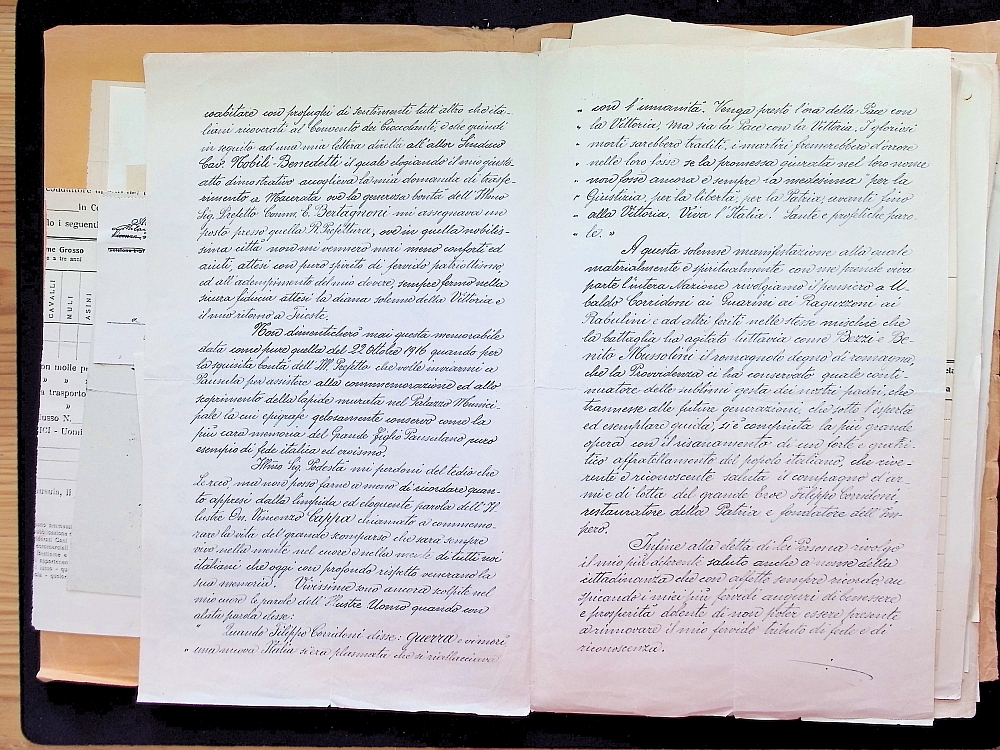 coabitare con profughi di sentimenti tutt'altro che ita-
liani ricoverati al Convento dei Cioccolanti, e se quindi
in seguito ad una mia lettera diretta all'allor Sindaco
Cav. Nobili-Benedetti il quale elogiando il mio
atto dimostrativo accoglieva la mia domanda di trasfe-
rimento a Macerata ove la generosa bontà dell'Illmo
Sig. Prefetto Comm. E. Bertagnoni mi assegnava un
posto presso quella R. Prefettura, ove in quella nobilis-
sima città non mi vennero mai meno conforti ed
aiuti, attesi con puro spirito di fervido patriottismo,
ed all'adempimento del mio dovere, sempre fermo nella
sicura fiducia attesi la diana solenne della Vittoria e
il mio ritorno a Trieste.
Non dimenticherò mai questa memorabile
data come pure quella del 22 Ottobre 1916 quando per
la squisita bontà dell'Ill. Prefetto che volle inviarmi a
Pausula per assistere alla commemorazione ed allo
scoprimento della lapide murata nel Palazzo Munici-
pale la cui epigrafe gelosamente conservo come la
più cara memoria del Grande figlio Pausulano puro
esempio di fede italica ed eroismo.
Illmo Sig. Podestà mi perdoni del tedio che
Le reco, ma non posso farne a meno di ricordare quan-
to appresi dalla limpida ed eloquente parola dell'Il-
lustre On. Vincenzo Cappa chiamato a commemo-
rare la vita del grande scomparso che sarà sempre
vivo nella mente nel cuore e nella mente di tutti noi
italiani che oggi con profondo rispetto venerano la
sua memoria. Vivissime sono ancora scolpite nel
mio cuore le parole dell'Illustre Uomo quando con
alata parola disse:
" Quando Filippo Corridoni disse: guerra e vi morì,
" una nuova Italia s'era plasmata che si riallacciava
" con l'umanità. Venga presto l'ora della Pace con
" la Vittoria, ma sia la Pace con la Vittoria. I gloriosi
" morti sarebbero traditi, i martiri fremerebbero d'orrore
" nelle loro fosse se la promessa giurata nel loro nome
" non fosse ancora e sempre la medesima "per la
" Giustizia, per la libertà, per la Patria, avanti fino
" alla Vittoria. Viva l'Italia! Sante e profetiche paro
" le. "
A questa solenne manifestazione alla quale
materialmente e spiritualmente con me prende viva
parte l'intera Nazione rivolgiamo il pensiero a U-
baldo Corridoni ai Guarini ai Raguzzoni ai
Rabulini e ad altri feriti nelle stesse mischie che
la battaglia ha agitato tuttavia come Bezzi e Be-
nito Mussolini il romagnolo degno di romagna,
che la Provvidenza ci ha conservato quale conti-
nuatore delle sublimi gesta dei nostri padri, che
tramesse alle future generazioni, che sotto l'esperta
ed esemplare guida, si è compiuta la più grande
opera con il risanamento di un forte e
affratellamento del popolo italiano, che rive-
rente e riconoscente saluta il compagno d'ar-
mi e di lotta del grande Eroe Filippo Corridoni,
restauratore della Patria e fondatore dell'Im-
pero.
Infine alla eletta di Lei Persona rivolgo
il mio più deferente saluto anche a nome della
cittadinanza che con affetto sempre ricordo au
spicando i miei più fervidi auguri di benessere
e prosperità dolente di non poter essere presente
a rinnovare il mio fervido tributo di fede e di
riconoscenza.
in C
lo i seguent
me Grosso
e a tre anni
CAVALLI
MULI
ASINI
on molle p
a trasporto
usso N.
ICI - Uomi